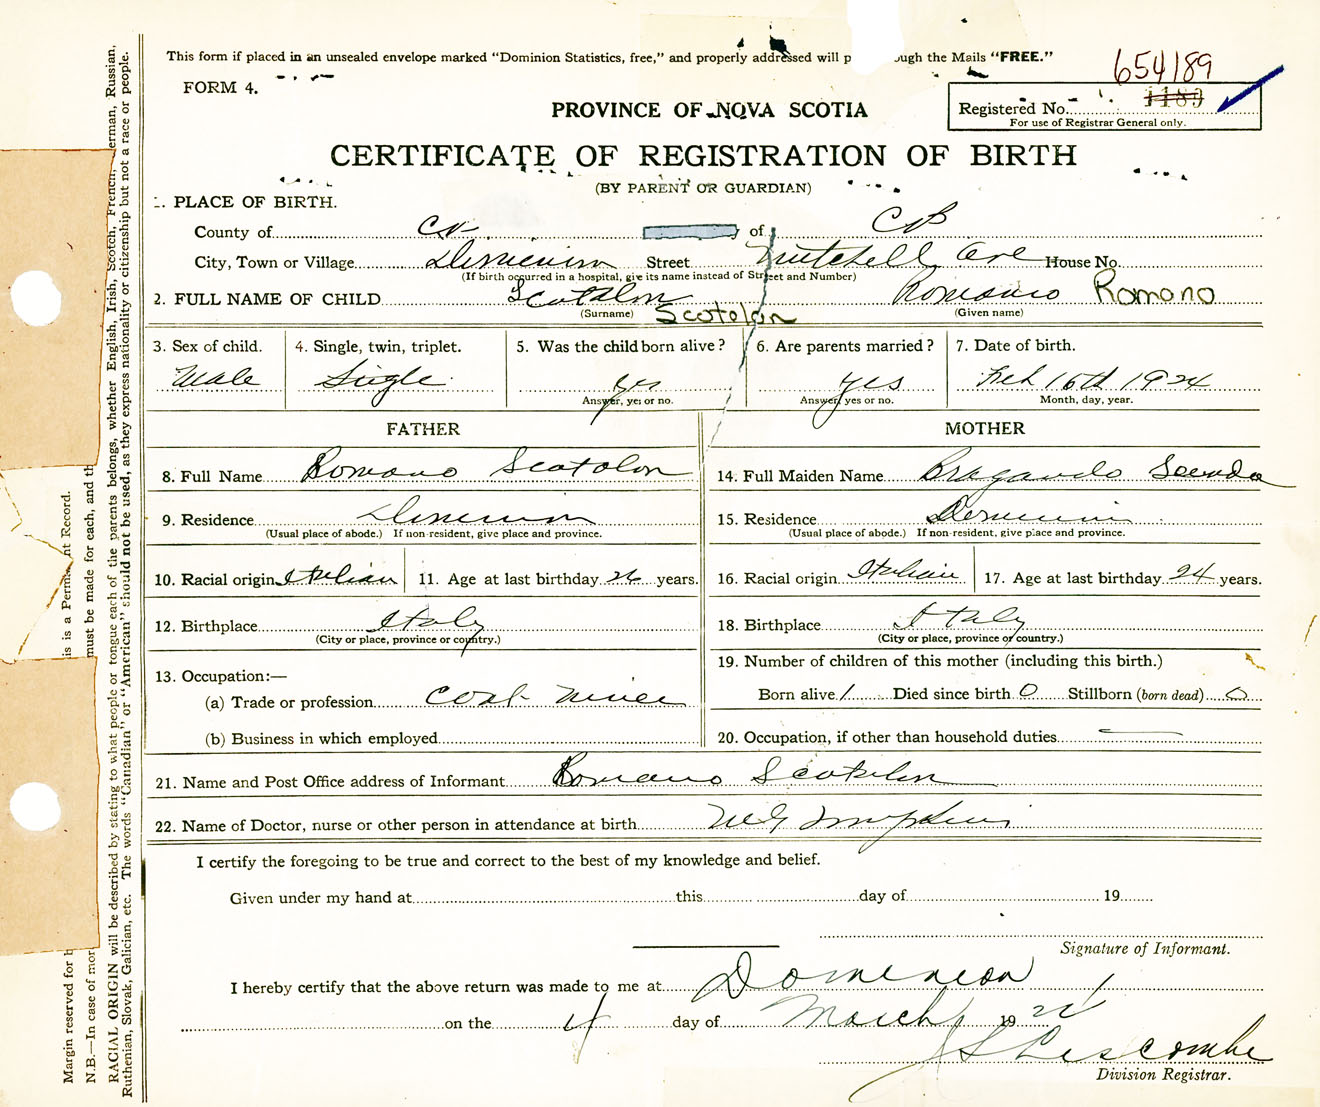 This form if placed in an unsealed envelope marked "Dominion Statistics, free," and properly addressed will p ough the Mails "FREE."
654189
FORM 4.
PROVINCE OF NOVA SCOTIA
Registered No. 1189
For use of Registrar General only.
CERTIFICATE OF REGISTRATION OF BIRTH
(BY PARENT OR GUARDIAN)
1. PLACE OF BIRTH.
County of of CB
City, Town or Village Dominion Street Mitchell Ave House No.
(If birth occurred in a hospital, give its name instead of Street and Number)
2. FULL NAME OF CHILD Scotolon Romano Romono
(Surname) Scotolon (Given name)
3. Sex of child. 4. Single, twin, triplet. 5. Was the child born alive? 6. Are parents married? 7. Date of birth.
Male Single yes yes Feb 15th 1924
Answer, yes or no. Answer, yes or no. Month, day, year.
FATHER MOTHER
8. Full Name Romano Scotolon 14. Full Maiden Name Bragando
9. Residence Dominion 15. Residence Dominion
(Usual place of abode.) If non-resident, give place and province. (Usual place of abode.) If non-resident, give place and province.
10. Racial origin Italian 11. Age at last birthday 26 years. 16. Racial origin Italian 17. Age at last birthday 24 years.
12. Birthplace Italy 18. Birthplace Italy
(City or place, province or country.) (City or place, province or country.)
13. Occupation:— 19. Number of children of this mother (including this birth.)
(a) Trade or profession Coal Miner Born alive 1 Died since birth 0 Stillborn (born dead) 0
(b) Business in which employed 20. Occupation, if other than household duties —
21. Name and Post Office address of Informant Romano Scotolon
22. Name of Doctor, nurse or other person in attendance at birth
I certify the foregoing to be true and correct to the best of my knowledge and belief.
Given under my hand at this day of 19
Signature of Informant.
I hereby certify that the above return was made to me at Dominion
on the 4 day of March 19 24
Lescombe
Division Registrar.
Margin reserved for b is is a Perma nt Record.
N.B.—In case of mor must be made for each, and th
RACIAL ORIGIN will be described by stating to what people or tongue each of the parents belongs, whether English, Irish, Scotch, French, erman, Russian,
Ruthenian, Slovak, Galician, etc. The words "Canadian" or "American" should not be used, as they express nationality or citizenship but not a race or people.